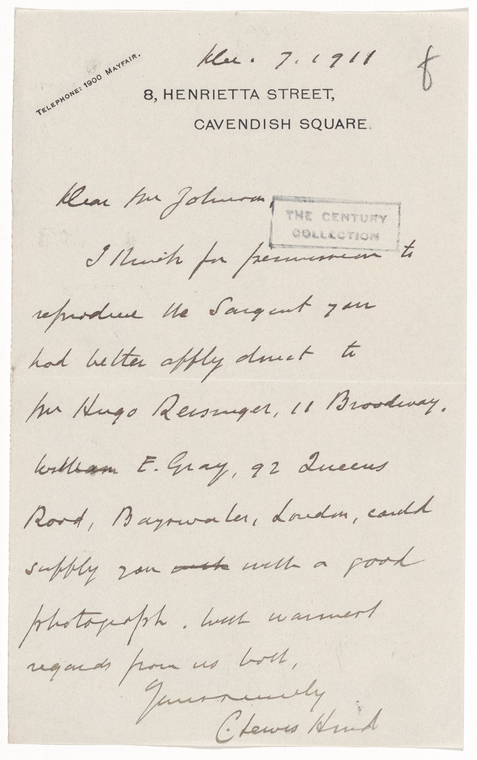 Dec. 7. 1911
8
TELEPHONE: 1900 MAYFAIR.
8, HENRIETTA STREET,
CAVENDISH SQUARE.
Dear Mr Johnson,
THE CENTURY
COLLECTION
I think for permission to
reproduce the Sargent you
had better apply direct to
Mr Hugo Reisinger, 11 Broadway.
William E. Gray, 92 Queens
Road, Bayswater, London, could
supply you with a good
photograph. With warmest
regards from us both,
Yours sincerely
C. Lewis Hind